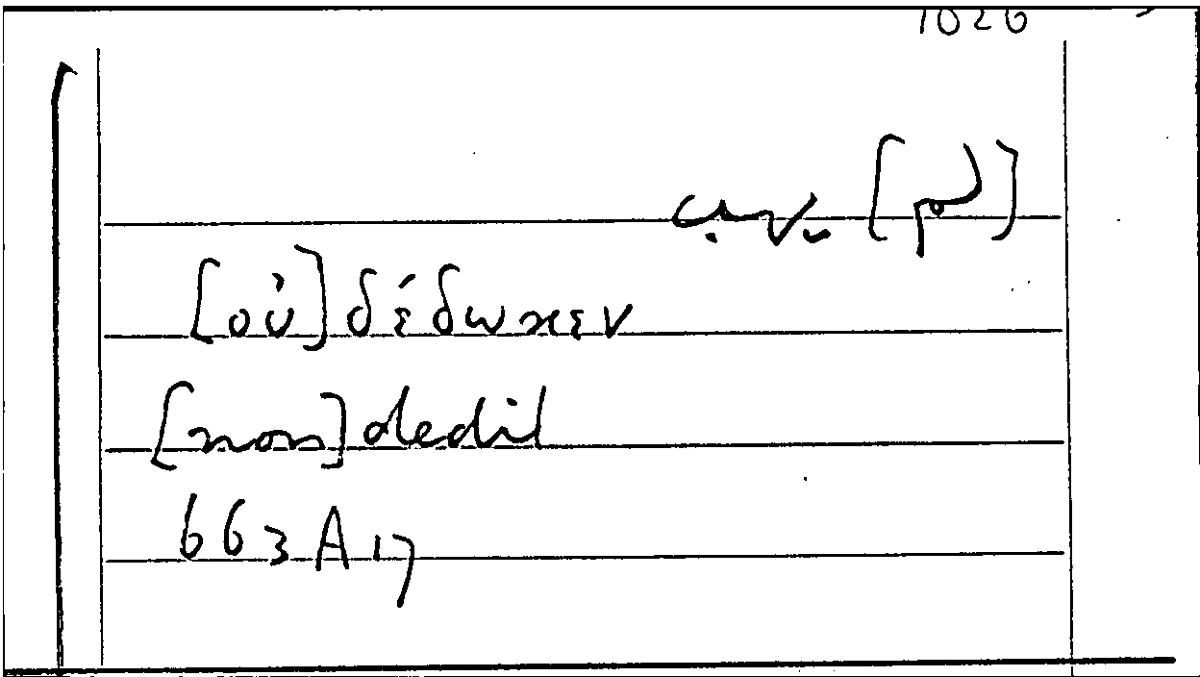 1026
[لم]
[οὐ] δέδωκεν
[non] dedit
663 A 17